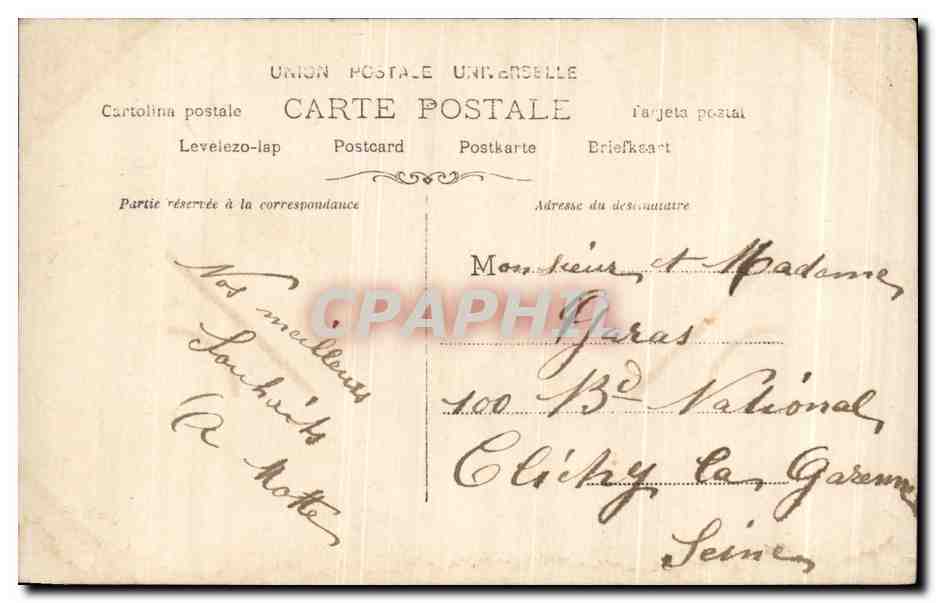 UNION POSTALE UNIVERSELLE
Cartolina postale CARTE POSTALE Tarjeta postal
Levelezo-lap Postcard Postkarte Briefkaart
Partie réservée à la correspondance
Adresse du destinataire
Nos meilleurs
Souhaits
A Motte
Monsieur et Madame
Garas
100 Bd National
Clichy la Garenne
Seine
CPAPHIL